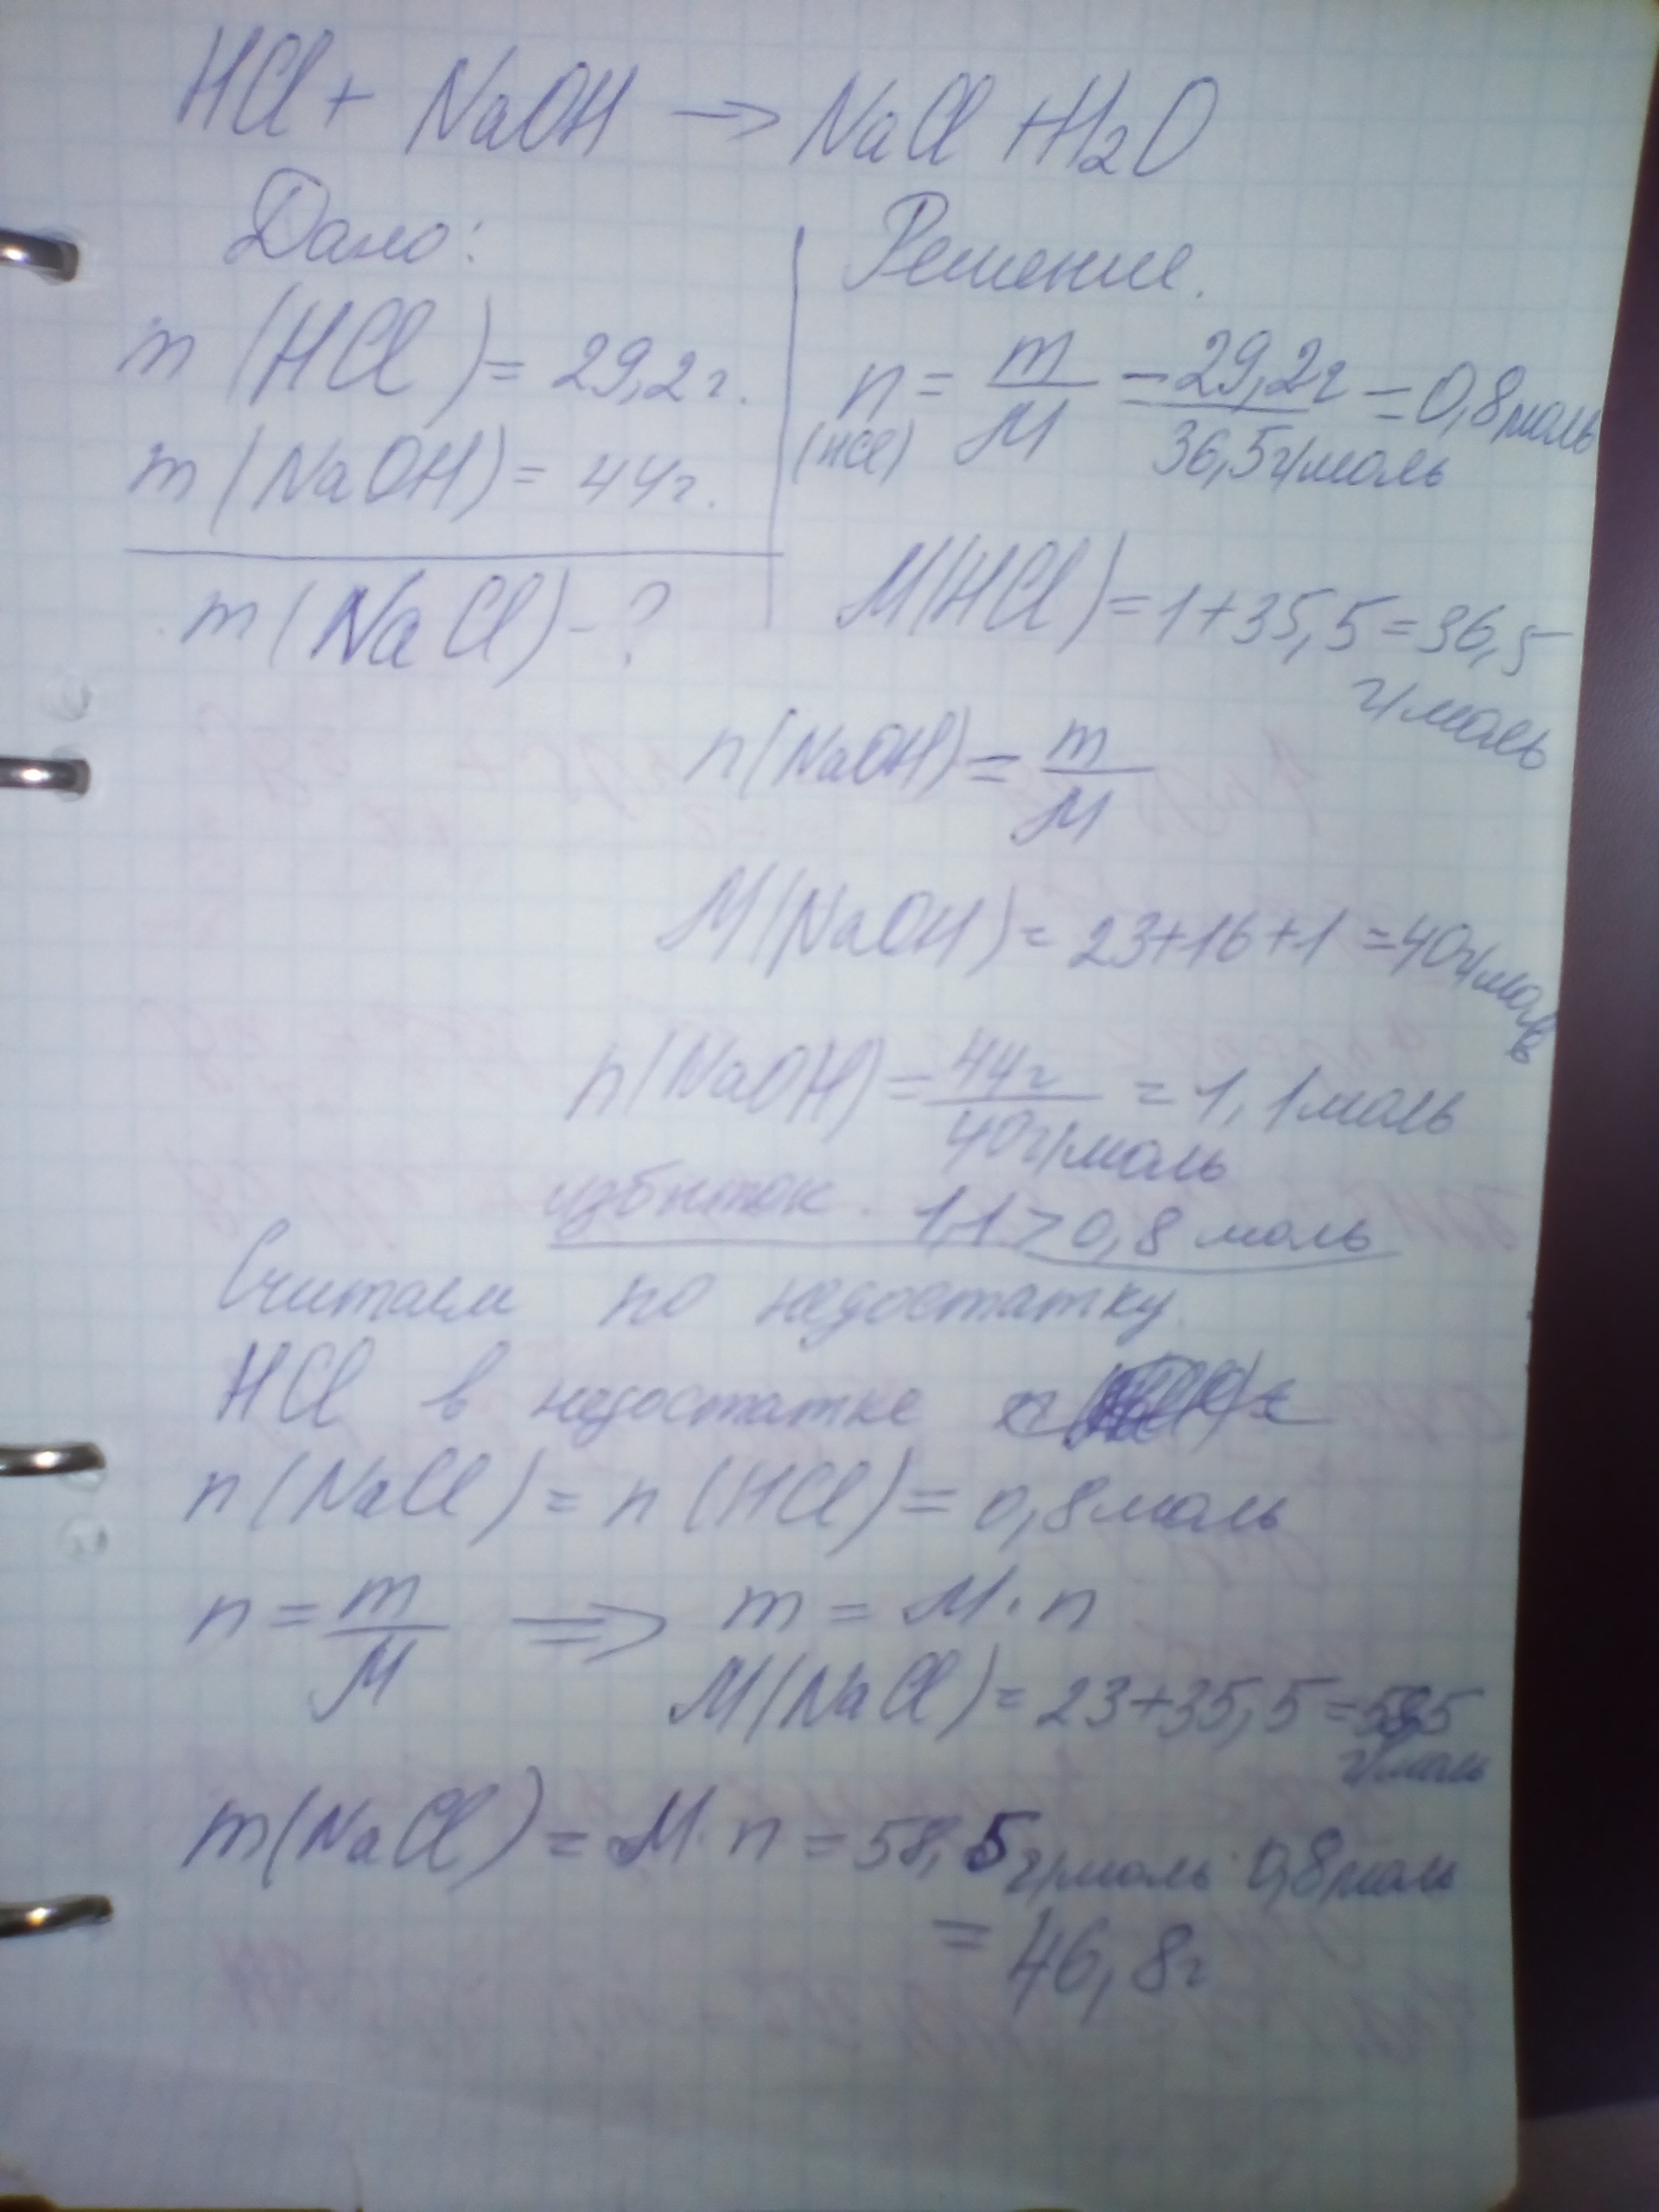 HCl + NaOH → NaCl + H₂O
Дано:
m (HCl) = 29,2г.
m (NaOH) = 44г.
m (NaCl) - ?
Решение.
n (HCl) = m/M = 29,2г/36,5г/моль = 0,8моль
M(HCl) = 1+35,5 = 36,5
г/моль
n(NaOH) = m/M
M(NaOH) = 23+16+1 = 40г/моль
n(NaOH) = 44г/40г/моль = 1,1моль
избыток. 1,1 > 0,8 моль
Считаем по недостатку.
HCl в недостатке
n(NaCl) = n(HCl) = 0,8моль
n = m/M ⇒ m = M·n
M(NaCl) = 23+35,5 = 58,5
г/моль
m(NaCl) = M·n = 58,5г/моль · 0,8моль
= 46,8г